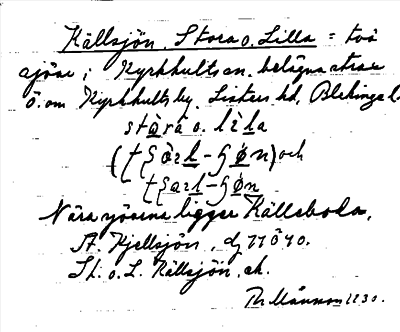 Källsjön, Stora o. Lilla = två
sjöar i Kyrkhults sn. belägna strax
ö. om Kyrkhults by. Listers hd, Blekinge l.
stàra o. lìla
(tʃàrl-ʃøn) och
tʃarl-ʃøn
Nära sjöarna ligger Källeboda.
St. Kjellsjön, dj 77840.
St. o. L. Källsjön, ek.
Månsson 1930.